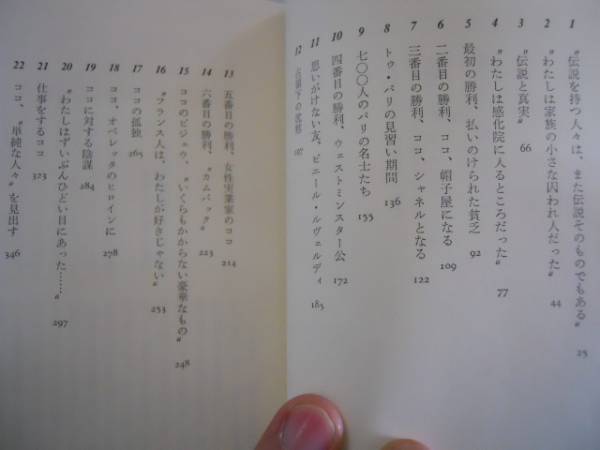 1 〝伝説を持つ人々は、また伝説そのものでもある〟 25
2 〝わたしは家族の小さな囚われ人だった〟 44
3 〝伝説と真実〟 66
4 〝わたしは感化院に入るところだった〟 77
5 最初の勝利、払いのけられた貧乏 92
6 二番目の勝利、ココ、帽子屋になる 109
7 三番目の勝利、ココ、シャネルとなる 122
8 トゥ・パリの見習い期間 136
9 七〇〇人のパリの名士たち 155
10 四番目の勝利、ウェストミンスター公 172
11 思いがけない友、ピエール・ルヴェルディ 185
12 占領下の
13 五番目の勝利、女性実業家のココ 214
14 六番目の勝利、〝カムバック〟 223
15 ココのビジュウ、〝いくらもかからない豪華なもの〟 248
16 〝フランス人は、わたしが好きじゃない〟 253
17 ココの孤独 265
18 ココ、オペレッタのヒロインに 278
19 ココに対する陰謀 284
20 〝わたしはずいぶんひどい目にあった……〟 297
21 仕事をするココ 323
22 ココ、〝単純な人々〟を見出す 346